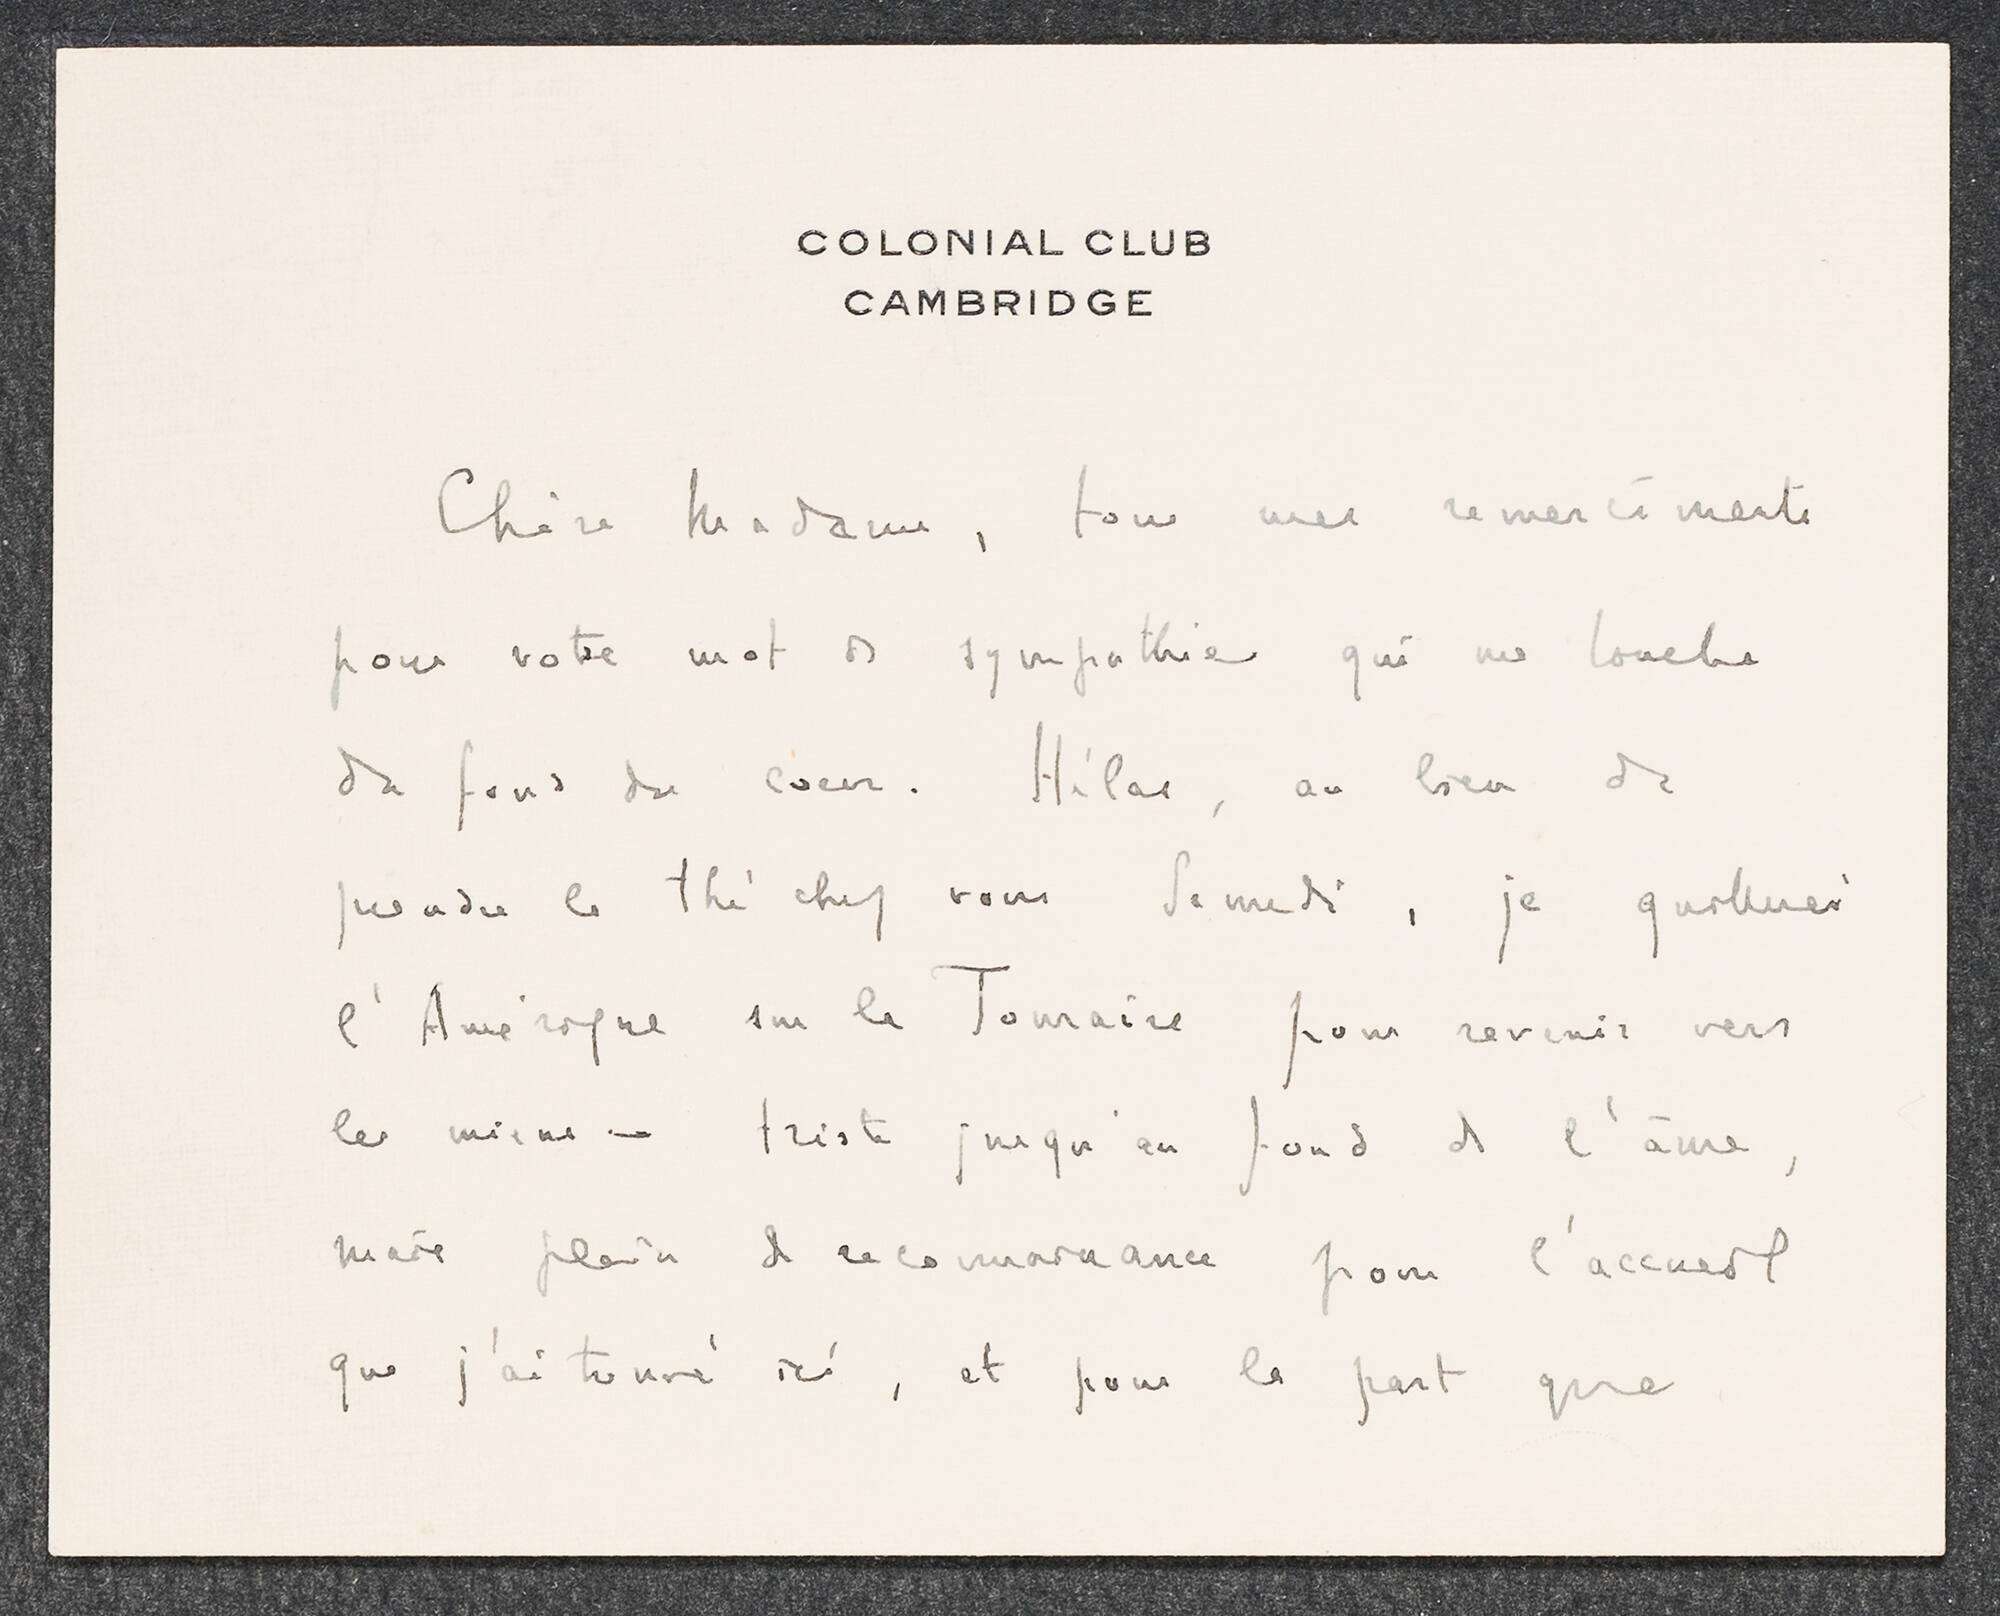 COLONIAL CLUB
CAMBRIDGE
Chère Madame, tous mes remerciments
pour votre mot de sympathie qui me touche
du fond du coeur. Hélas, au lieu de
prendre le thé chez vous Samedi, je quitterai
l'Amérique sur la Touraine pour revenir vers
les miens — triste jusqu'au fond de l'âme,
mais plein de reconnaissance pour l'accueil
que j'ai trouvé ici, et pour la part que